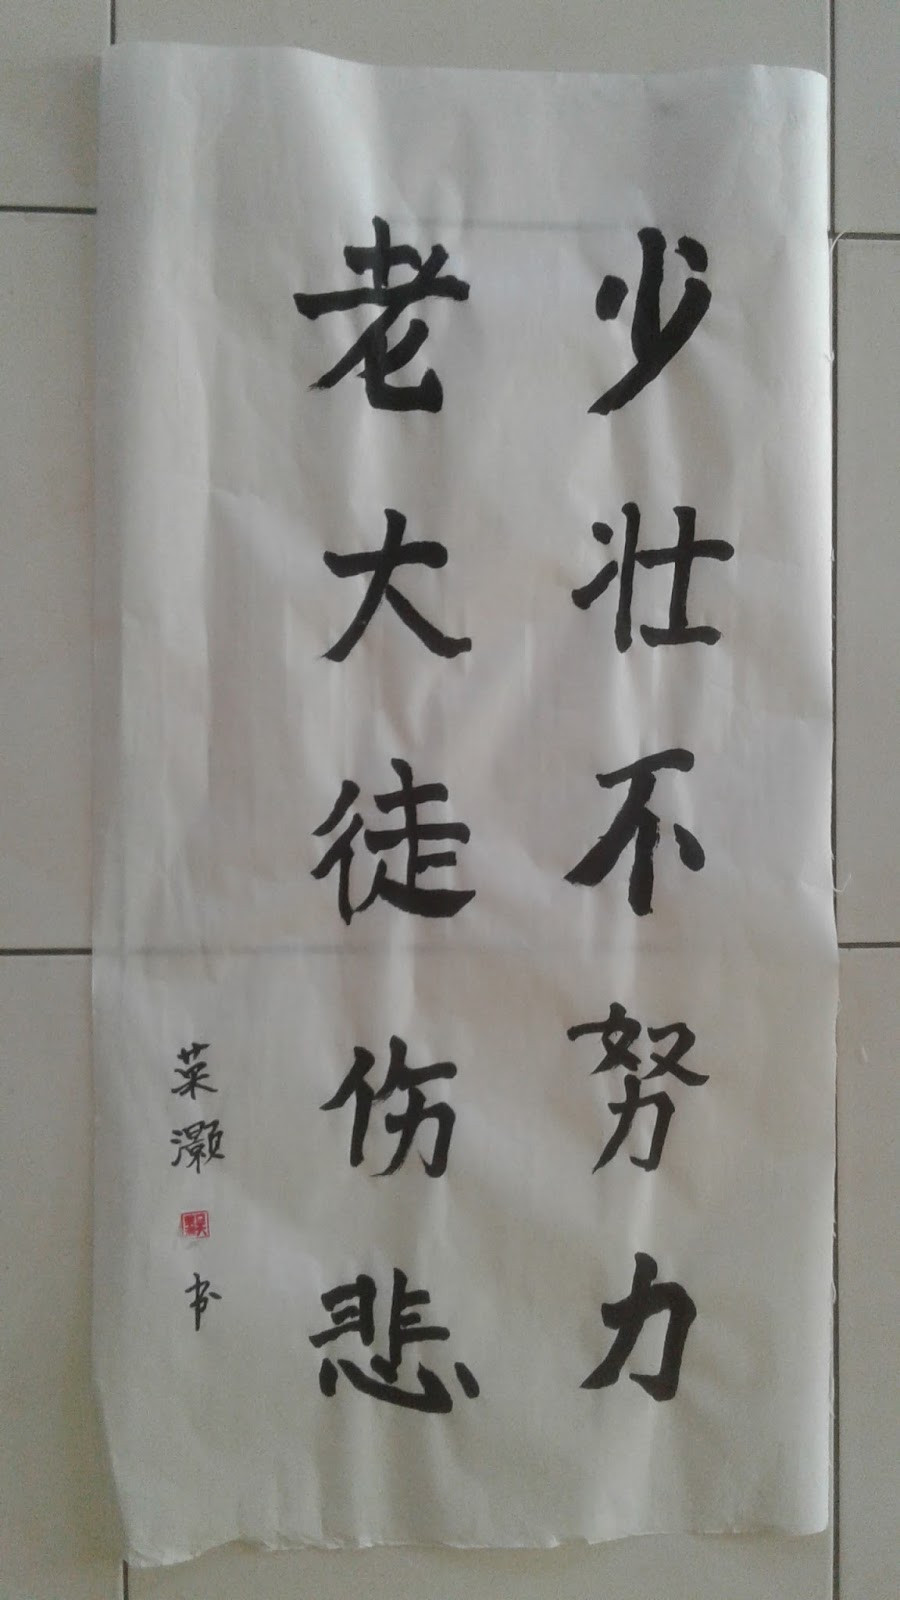 少壮不努力
老大徒伤悲
菜灏
书